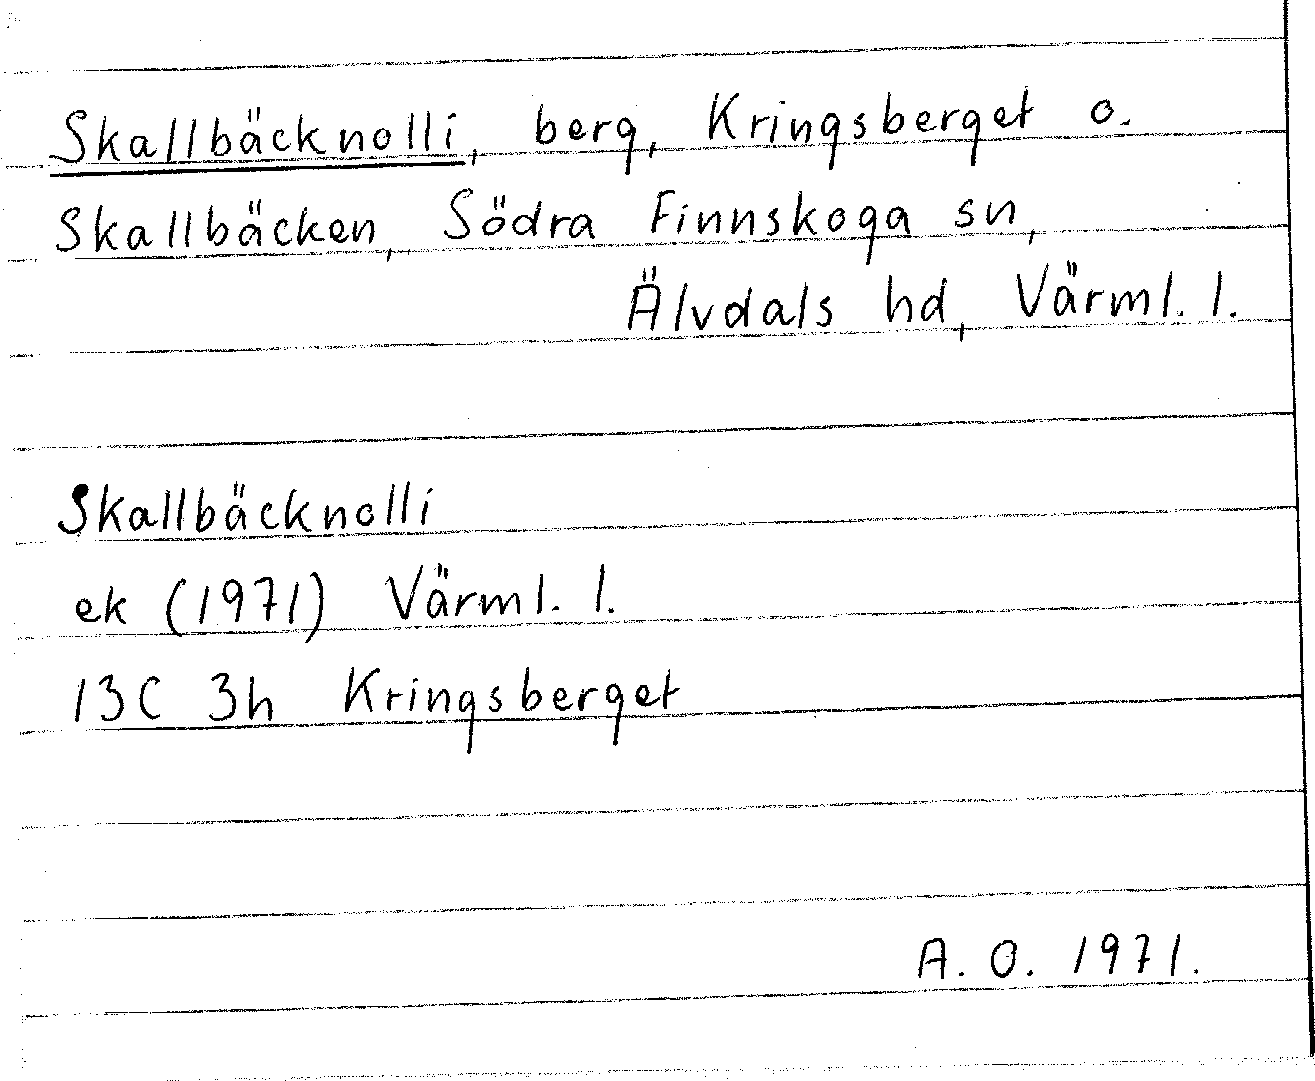 Skallbäcknolli, berg, Kringsberget o.
Skallbäcken, Södra Finnskoga sn,
Älvdals hd, Värml. l.
Skallbäcknolli
ek (1971) Värml. l.
13C 3h Kringsberget
A. O. 1971.